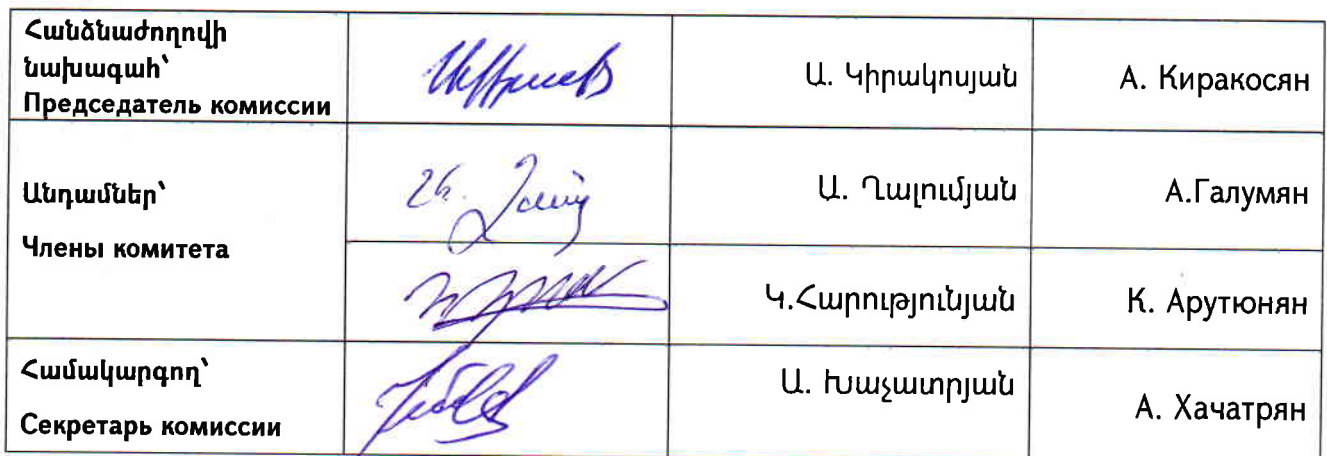 Հանձնաժողովի
նախագահ՝
Председатель комиссии
Ա. Կիրակոսյան
А. Киракосян
Անդամներ՝
Члены комитета
Ա. Ղալումյան
А.Галумян
Կ.Հարությունյան
К. Арутюнян
Համակարգող՝
Секретарь комиссии
Ա. Խաչատրյան
А. Хачатрян